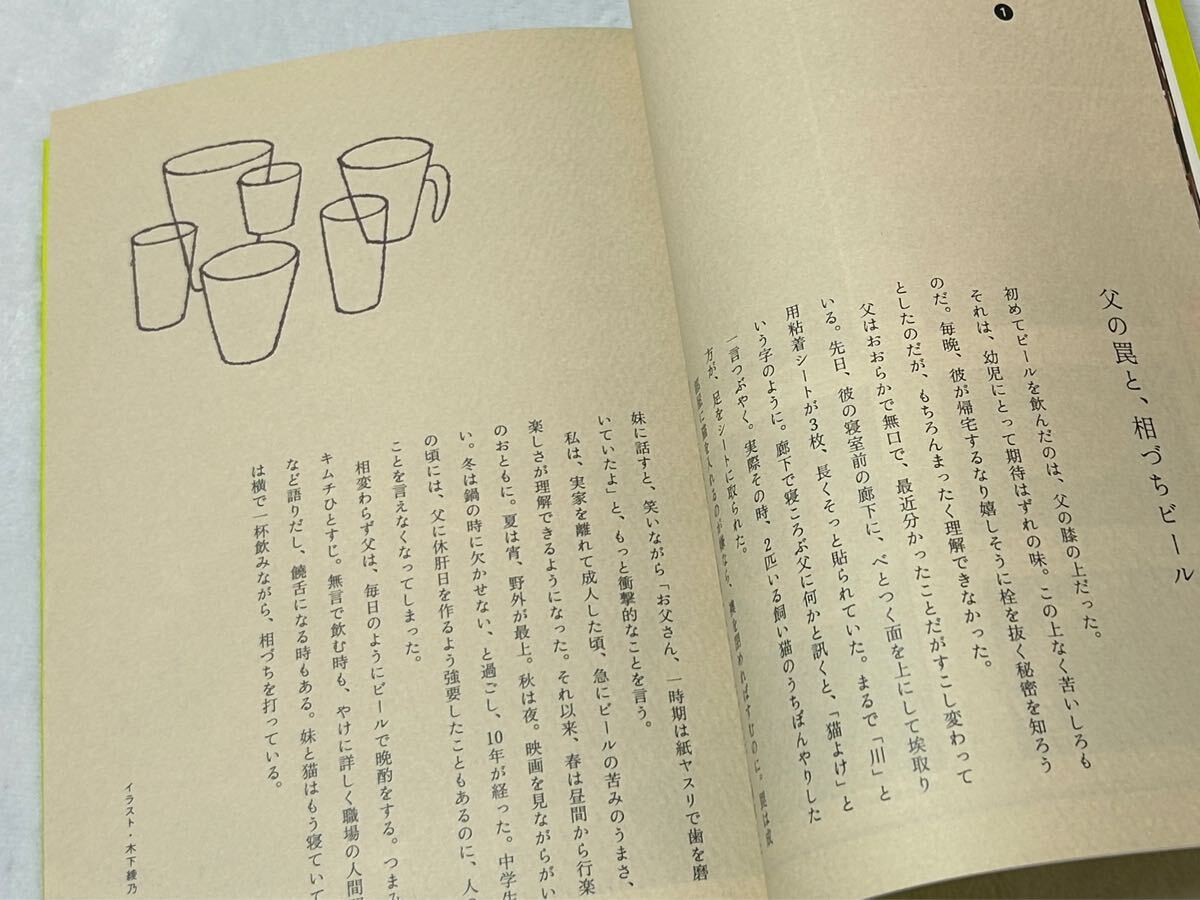 1
父の罠と、相づちビール
初めてビールを飲んだのは、父の膝の上だった。
それは、幼児にとって期待はずれの味。この上なく苦いしろも
のだ。毎晩、彼が帰宅するなり嬉しそうに栓を抜く秘密を知ろう
としたのだが、もちろんまったく理解できなかった。
父はおおらかで無口で、最近分かったことだがすこし変わって
いる。先日、彼の寝室前の廊下に、べとつく面を上にして埃取り
用粘着シートが3枚、長くそっと貼られていた。まるで「川」と
いう字のように。廊下で寝ころぶ父に何かと訊くと、「猫よけ」と
一言つぶやく。実際その時、2匹いる飼い猫のうちぼんやりした
方が、足をシートに取られた。
に猫を入れるのが嫌なら、
閉めればすむのに。罠は成
妹に話すと、笑いながら「お父さん、一時期は紙ヤスリで歯を磨
いていたよ」と、もっと衝撃的なことを言う。
私は、実家を離れて成人した頃、急にビールの苦みのうまさ、
楽しさが理解できるようになった。それ以来、春は昼間から行楽
のおともに。夏は宵、野外が最上。秋は夜。映画を見ながらがい
い。冬は鍋の時に欠かせない、と過ごし、10年が経った。中学生
の頃には、父に休肝日を作るよう強要したこともあるのに、人の
ことを言えなくなってしまった。
相変わらず父は、毎日のようにビールで晩酌をする。つまみ
キムチひとすじ。無言で飲む時も、やけに詳しく職場の人間
など語りだし、饒舌になる時もある。妹と猫はもう寝ていて
は横で一杯飲みながら、相づちを打っている。
イラスト・木下綾乃